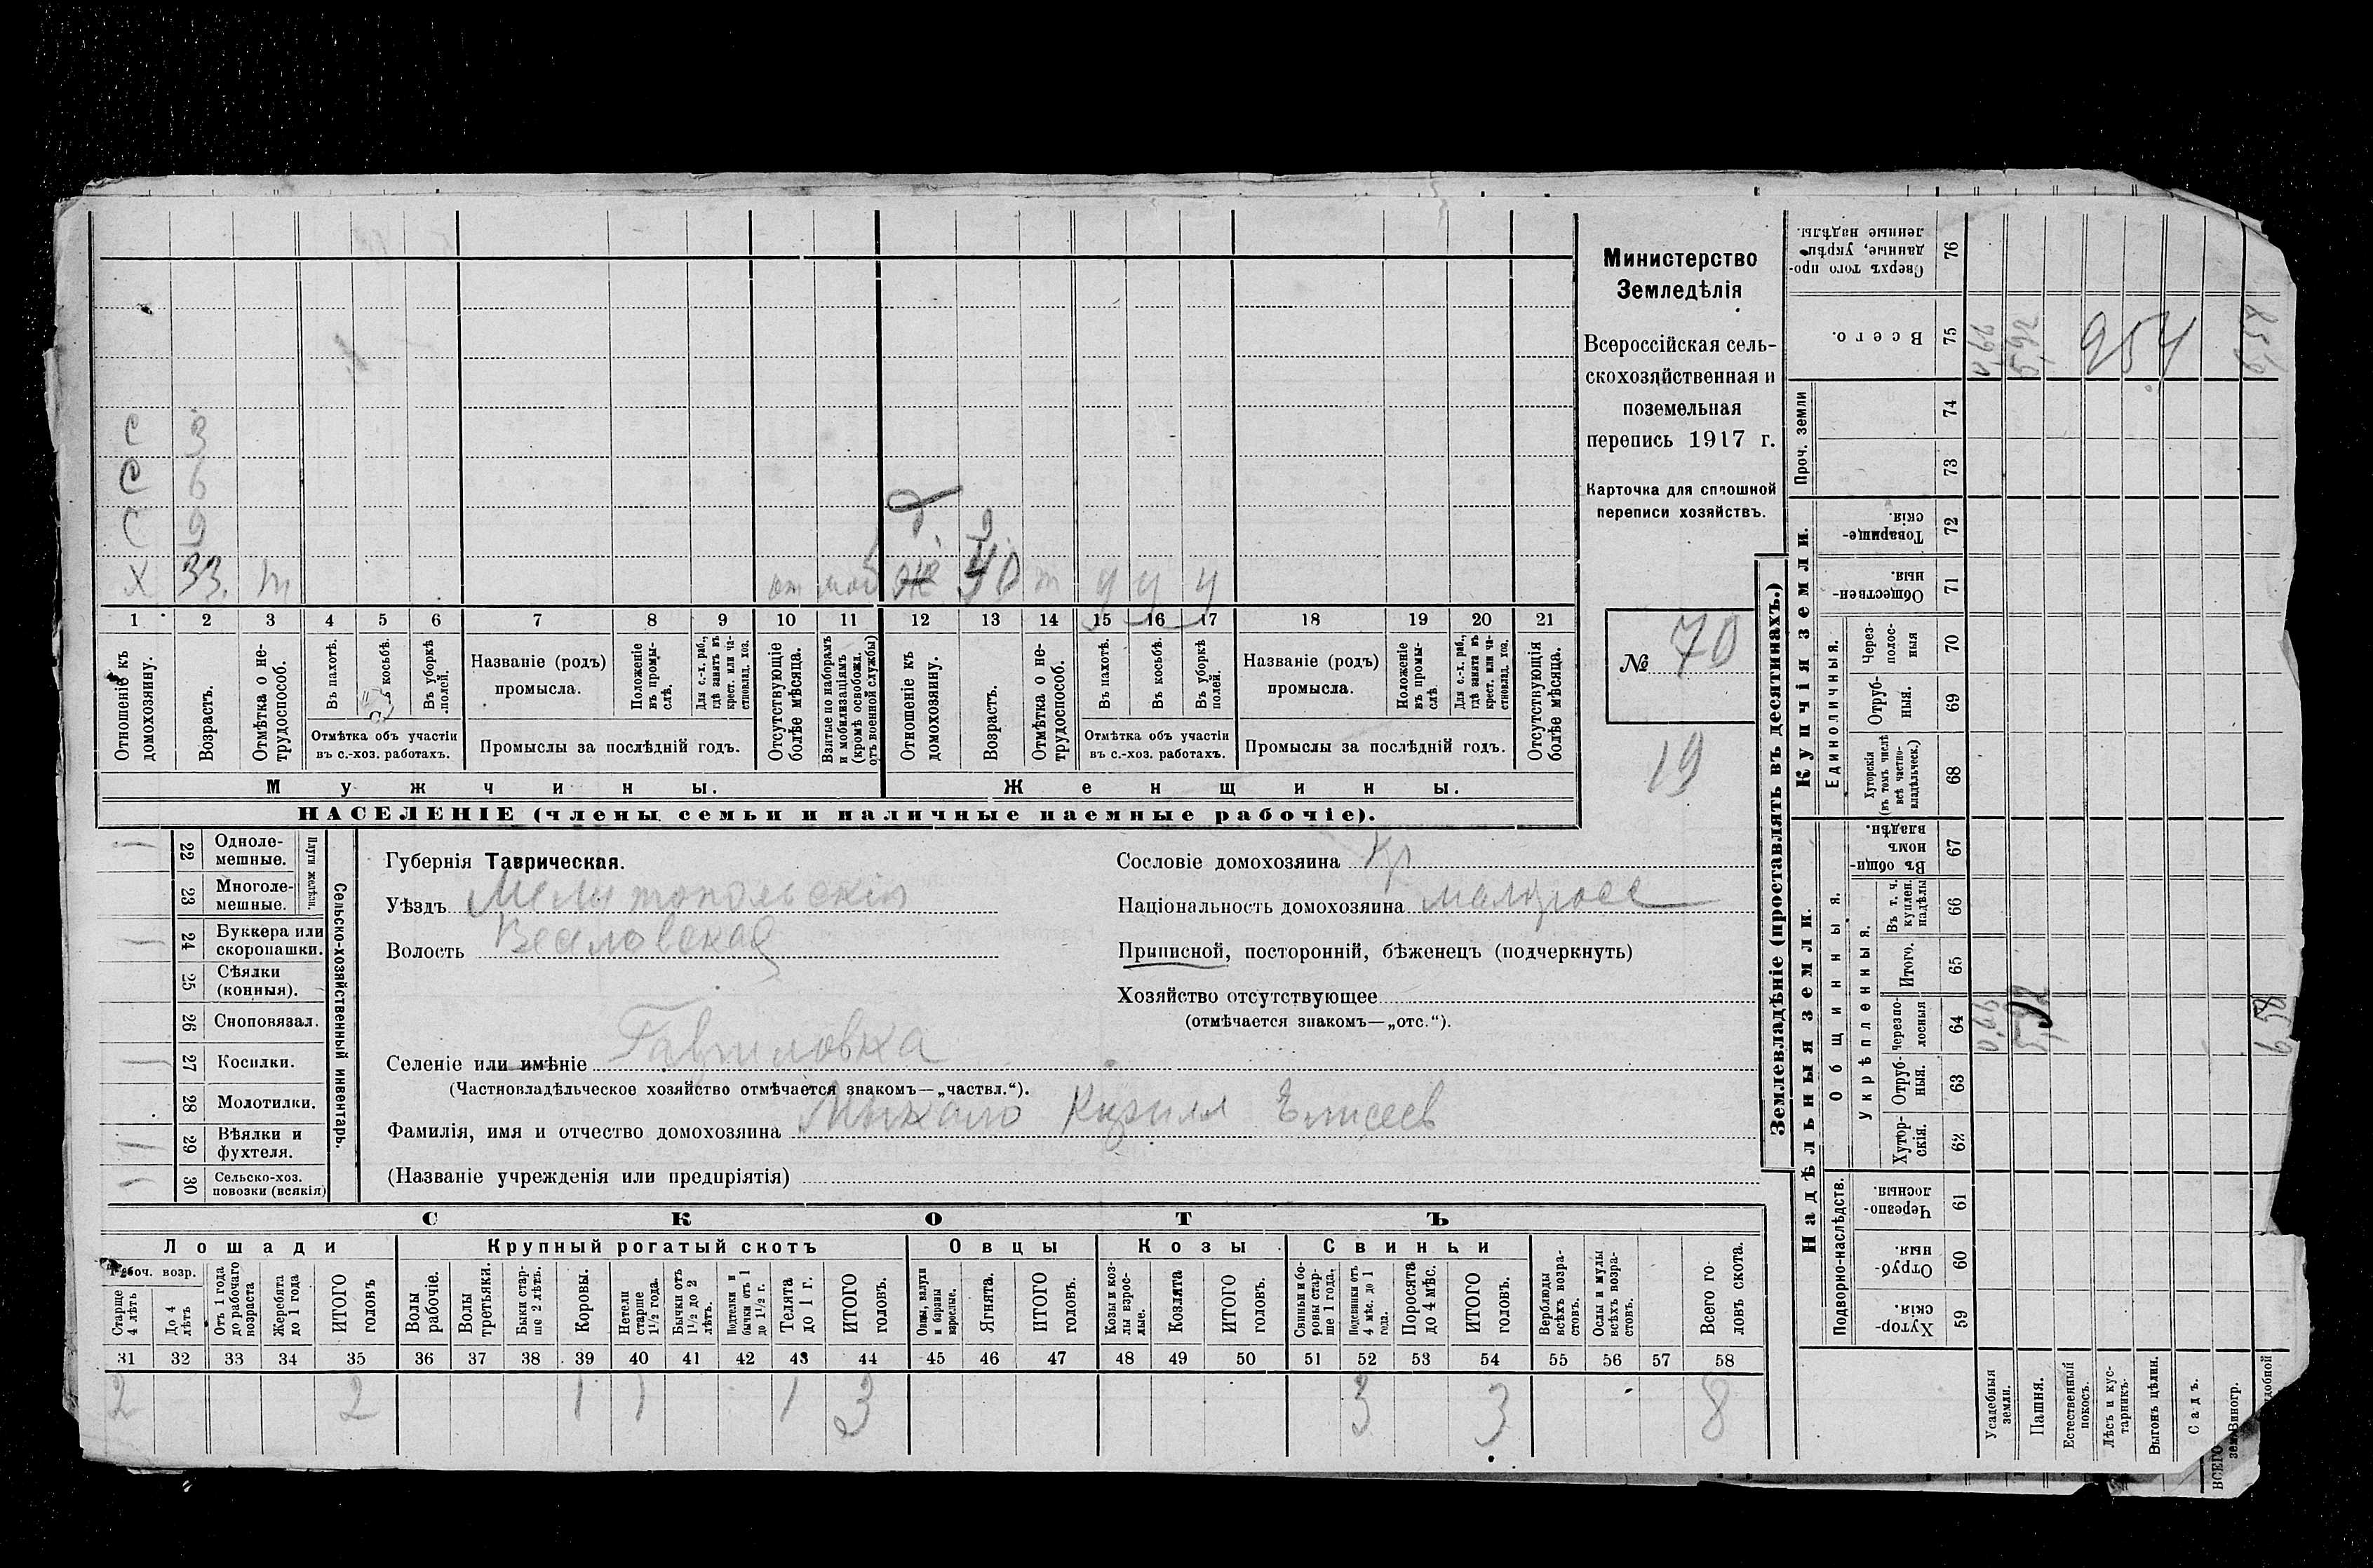 Министерство
Земледѣлія
Всероссійская сель-
скохозяйственная и
поземельная
перепись 1917 г.
Карточка для сплошной
переписи хозяйствъ.
№ 70
19
С 3
С 6
С 9
Х 33. т
от моб
д 9
40 т у у у
1 2 3 4 5 6 7 8 9 10 11 12 13 14 15 16 17 18 19 20 21
Отношеніе къ домохозяину.
Возрастъ.
Отмѣтка о не-трудоспособ.
Въ пахотѣ.
косьбѣ.
Въ уборкѣ полей.
Отмѣтка объ участіи
въ с.-хоз. работахъ.
Названіе (родъ)
промысла.
Положеніе въ промы-слѣ.
Для с.-х. раб., гдѣ занятъ въ крест. или ча-стновлад. хоз.
Промыслы за послѣдній годъ.
Отсутствующіе болѣе мѣсяца.
Взятые по наборамъ и мобилизаціямъ (кромѣ освобожд. отъ военной службы)
Отношеніе къ домохозяину.
Возрастъ.
Отмѣтка о не-трудоспособ.
Въ пахотѣ.
Въ косьбѣ.
Въ уборкѣ полей.
Отмѣтка объ участіи
въ с.-хоз. работахъ.
Названіе (родъ)
промысла.
Положеніе въ промы-слѣ.
Для с.-х. раб., гдѣ занята въ крест. или ча-стновлад. хоз.
Промыслы за послѣдній годъ.
Отсутствующія болѣе мѣсяца.
Мужчины.
Женщины.
НАСЕЛЕНІЕ (члены семьи и наличные наемные рабочіе).
22 Одноле-мешные.
23 Многоле-мешные.
Плуги желѣзн.
24 Буккера или скоропашки.
25 Сѣялки (конныя).
26 Сноповязал.
27 Косилки.
28 Молотилки.
29 Вѣялки и фухтеля.
30 Сельско-хоз. повозки (всякія)
Сельско-хозяйственный инвентарь.
Губернія Таврическая.
Уѣздъ Мелитопольскій
Волость Веселовская
Селеніе или имѣніе Гавриловка
(Частновладѣльческое хозяйство отмѣчается знакомъ—„частвл.“).
Фамилія, имя и отчество домохозяина Михайло Кирилл Елисеев
(Названіе учрежденія или предпріятія)
Сословіе домохозяина кр
Національность домохозяина малоросс
Приписной, посторонній, бѣженецъ (подчеркнуть)
Хозяйство отсутствующее
(отмѣчается знакомъ—„отс.“).
СКОТЪ
Лошади
Крупный рогатый скотъ
Овцы
Козы
Свиньи
Рабоч. возр.
Старще 4 лѣтъ
До 4 лѣтъ
Отъ 1 года до рабочаго возраста
Жеребята до 1 года
ИТОГО головъ
Волы рабочіе.
Волы третьяки.
Быки стар-ше 2 лѣтъ.
Коровы.
Нетели старше 1½ года.
Бычки отъ 1½ до 2 лѣтъ.
Подтелки и бычки отъ 1 до 1½ г.
Телята до 1 г.
ИТОГО головъ.
Овцы, валухи и бараны взрослые.
Ягнята.
ИТОГО головъ.
Козы и коз-лы взрос-лые.
Козлята
ИТОГО головъ.
Свиньи и бо-ровы стар-ше 1 года.
Подсвинки отъ 4 мѣс. до 1 года.
Поросята до 4 мѣс.
ИТОГО головъ.
Верблюды всѣхъ возра-стовъ.
Ослы и мулы всѣхъ возра-стовъ.
Всего го-ловъ скота.
31 32 33 34 35 36 37 38 39 40 41 42 43 44 45 46 47 48 49 50 51 52 53 54 55 56 57 58
2 2 1 1 1 3 3 3 8
Землевладѣніе (проставлять въ десятинахъ.)
Надѣльныя земли.
Купчія земли.
Проч. земли
Подворно-наслѣдств.
Общинныя.
Укрѣпленныя.
Единоличныя.
Хутор-скія. 59
Отруб-ныя. 60
Черезпо-лосныя. 61
Хутор-скія. 62
Отруб-ныя. 63
Черезпо-лосныя 64
Итого. 65
Въ т. ч. куплен. надѣлы 66
Въ общи-номъ владѣн. 67
Хуторскія (въ томъ числѣ всѣ частно-владѣльческ.) 68
Отруб-ныя. 69
Через-полос-ныя 70
Обществен-ныя. 71
Товарище-скія. 72
73
74
Всего. 75
Сверхъ того про-данные, укрѣп-ленные надѣлы. 76
Усадебныя земли. 0,66 0,66
Пашня. 5,92 5,92
Естественный покосъ.
Лѣсъ и кус-тарникъ.
Выгонъ цѣлин.
Садъ.
Виногр.
ВСЕГО
удобной
6,58 6,58
954